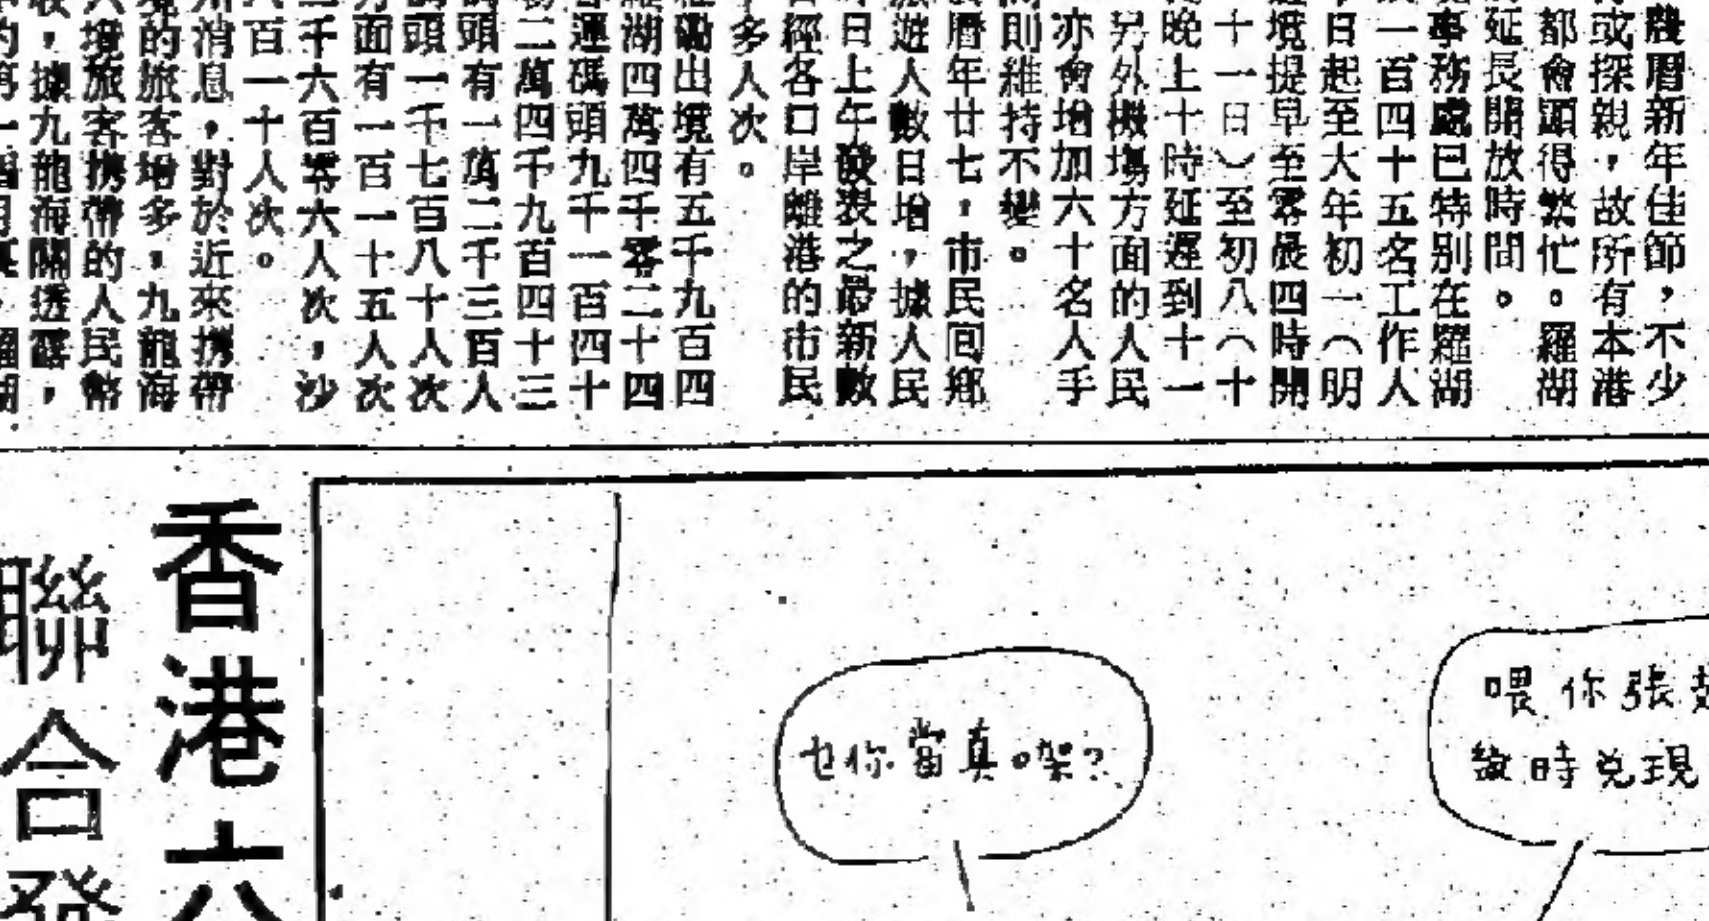 農曆新年佳節，不少
或探親，故所有本港
都會顯得繁忙。羅湖
延長開放時間。
事務處已特別在羅湖
一百四十五名工作人
日起至大年初一（明
境提早至零晨四時開
十一日）至初八（十
晚上十時延遲到十一
另外機場方面的人民
亦會增加六十名人手
則維持不變。
曆年廿七，市民回鄉
遊人數日增，據人民
日上午發表之最新數
經各口岸離港的市民
多人次。
出境有五千九百四
湖四萬四千零二十四
運碼頭九千一百四十
二萬四千九百四十三
頭有一萬二千三百人
頭一千七百八十人次
面有一百一十五人次
千六百零六人次，沙
百一十人次。
消息，對於近來携帶
的旅客增多，九龍海
境旅客携帶的人民幣
，據九龍海關透露，
香港六
聯合發
也你當真㗎？
喂你張
時兌現